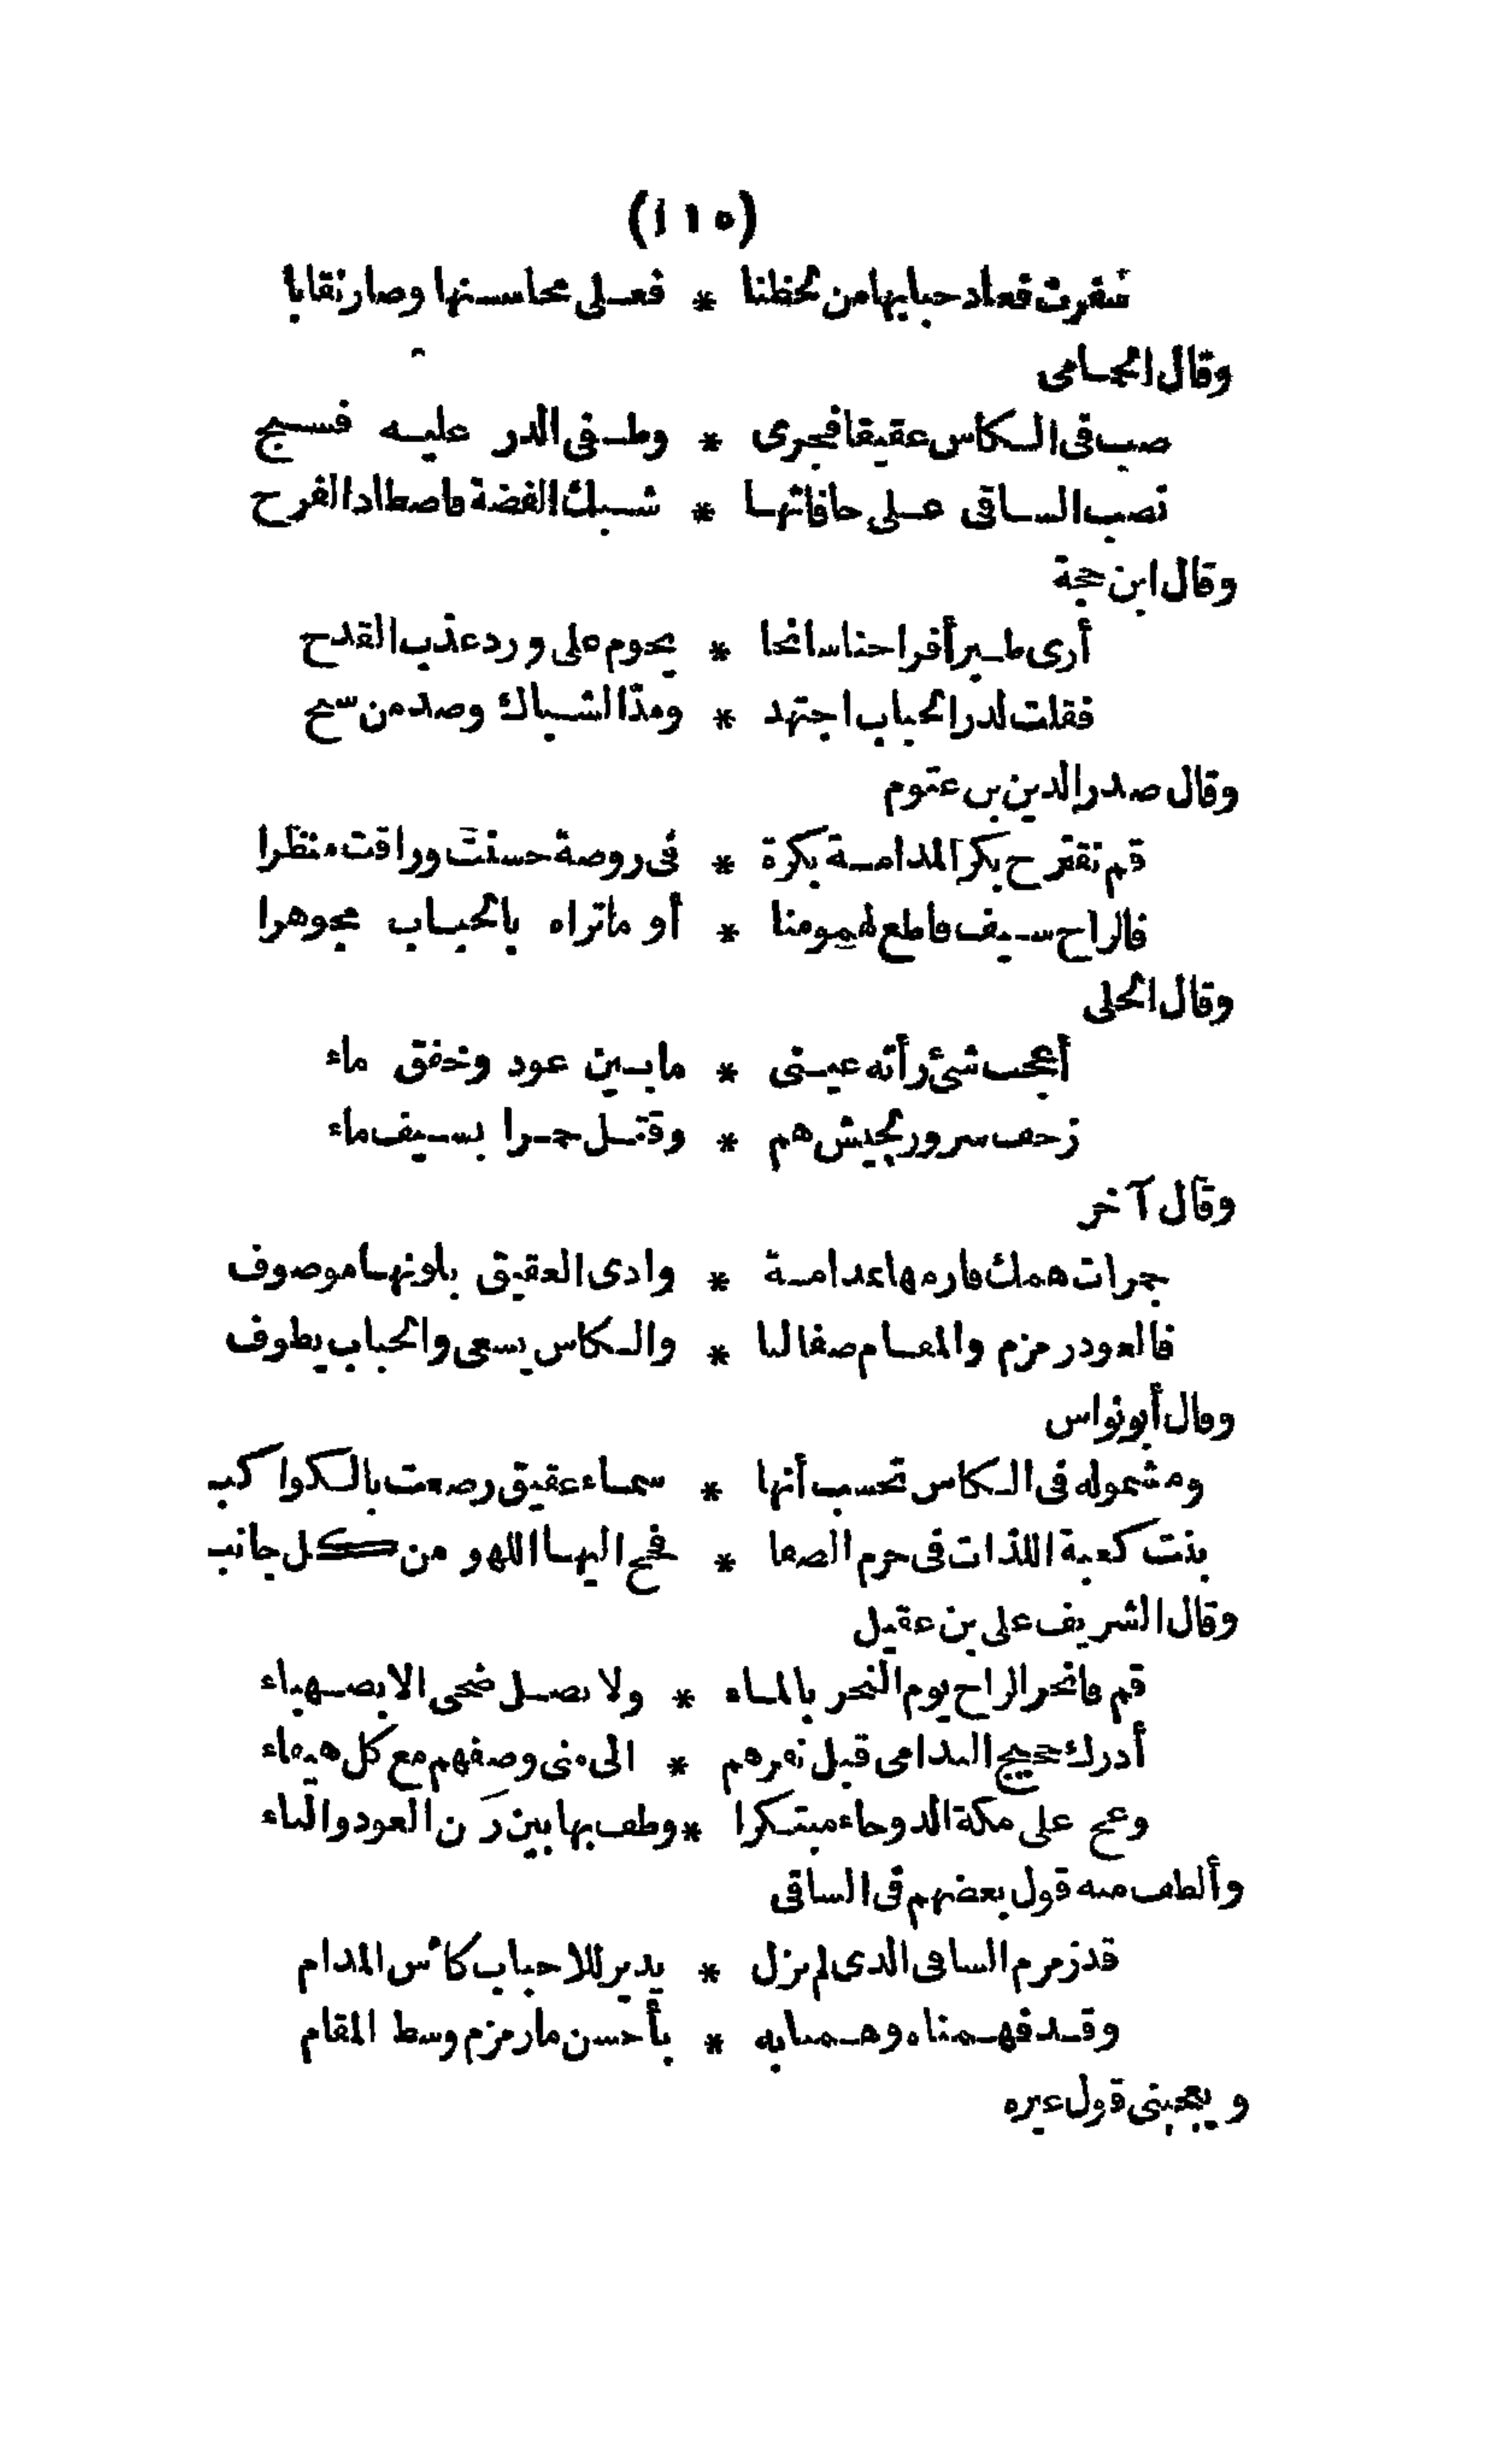 (١١٥)
سفرت فعاد حبابها من لحظنا * فعلى محاسنها وصار نقابا
وقال الجامى
صب فى الكاس عقيقا فجرى * وطفى الدر عليه فسبح
نصب الساقى على حافاتها * شبك الفضة فاصطاد الفرح
وقال ابن حجة
أرى طير أفراحنا سانحا * يحوم على ورد عذب القدح
فقلت لدر الحباب اجتهد * ومد الشباك وصد من سبح
وقال صدر الدين بن عتوم
قم نقترح بكر المدامة بكرة * فى روضة حسنت وراقت منظرا
فالراح سيف قاطع لهمومنا * أو ما تراه بالحباب مجوهرا
وقال الحلى
أعجب شئ رأته عينى * مابين عود وخفق ماء
زحف سرور لجيش هم * وقتل جرا بسيف ماء
وقال آخر
جمرات همك فارمها بمدامة * وادى العقيق بلونها موصوف
فالعود زمزم والمقام صفا لنا * والكاس يسعى والحباب يطوف
وقال أبو نواس
ومشموله فى الكاس تحسب أنها * سماء عقيق رصعت بالكواكب
بنت كعبة اللذات فى حرم الصفا * فحج اليها اللهو من كل جانب
وقال الشريف على بن عقيل
قم فانحر الراح يوم النحر بالماء * ولا تصل ضحى الا بصهباء
أدرك حجيج الندامى قبل نفرهم * الى منى وصفهم مع كل هيفاء
وعج على مكة الدوحاء مبتكرا * وطف بها بين ركن العود والناء
وألطف منه قول بعضهم فى الساقى
قد زمزم الساقى الذى لم يزل * يدير للاحباب كأس المدام
وقد فهمناه وهمنا به * بأحسن ما زمزم وسط المقام
ويعجبنى قول غيره